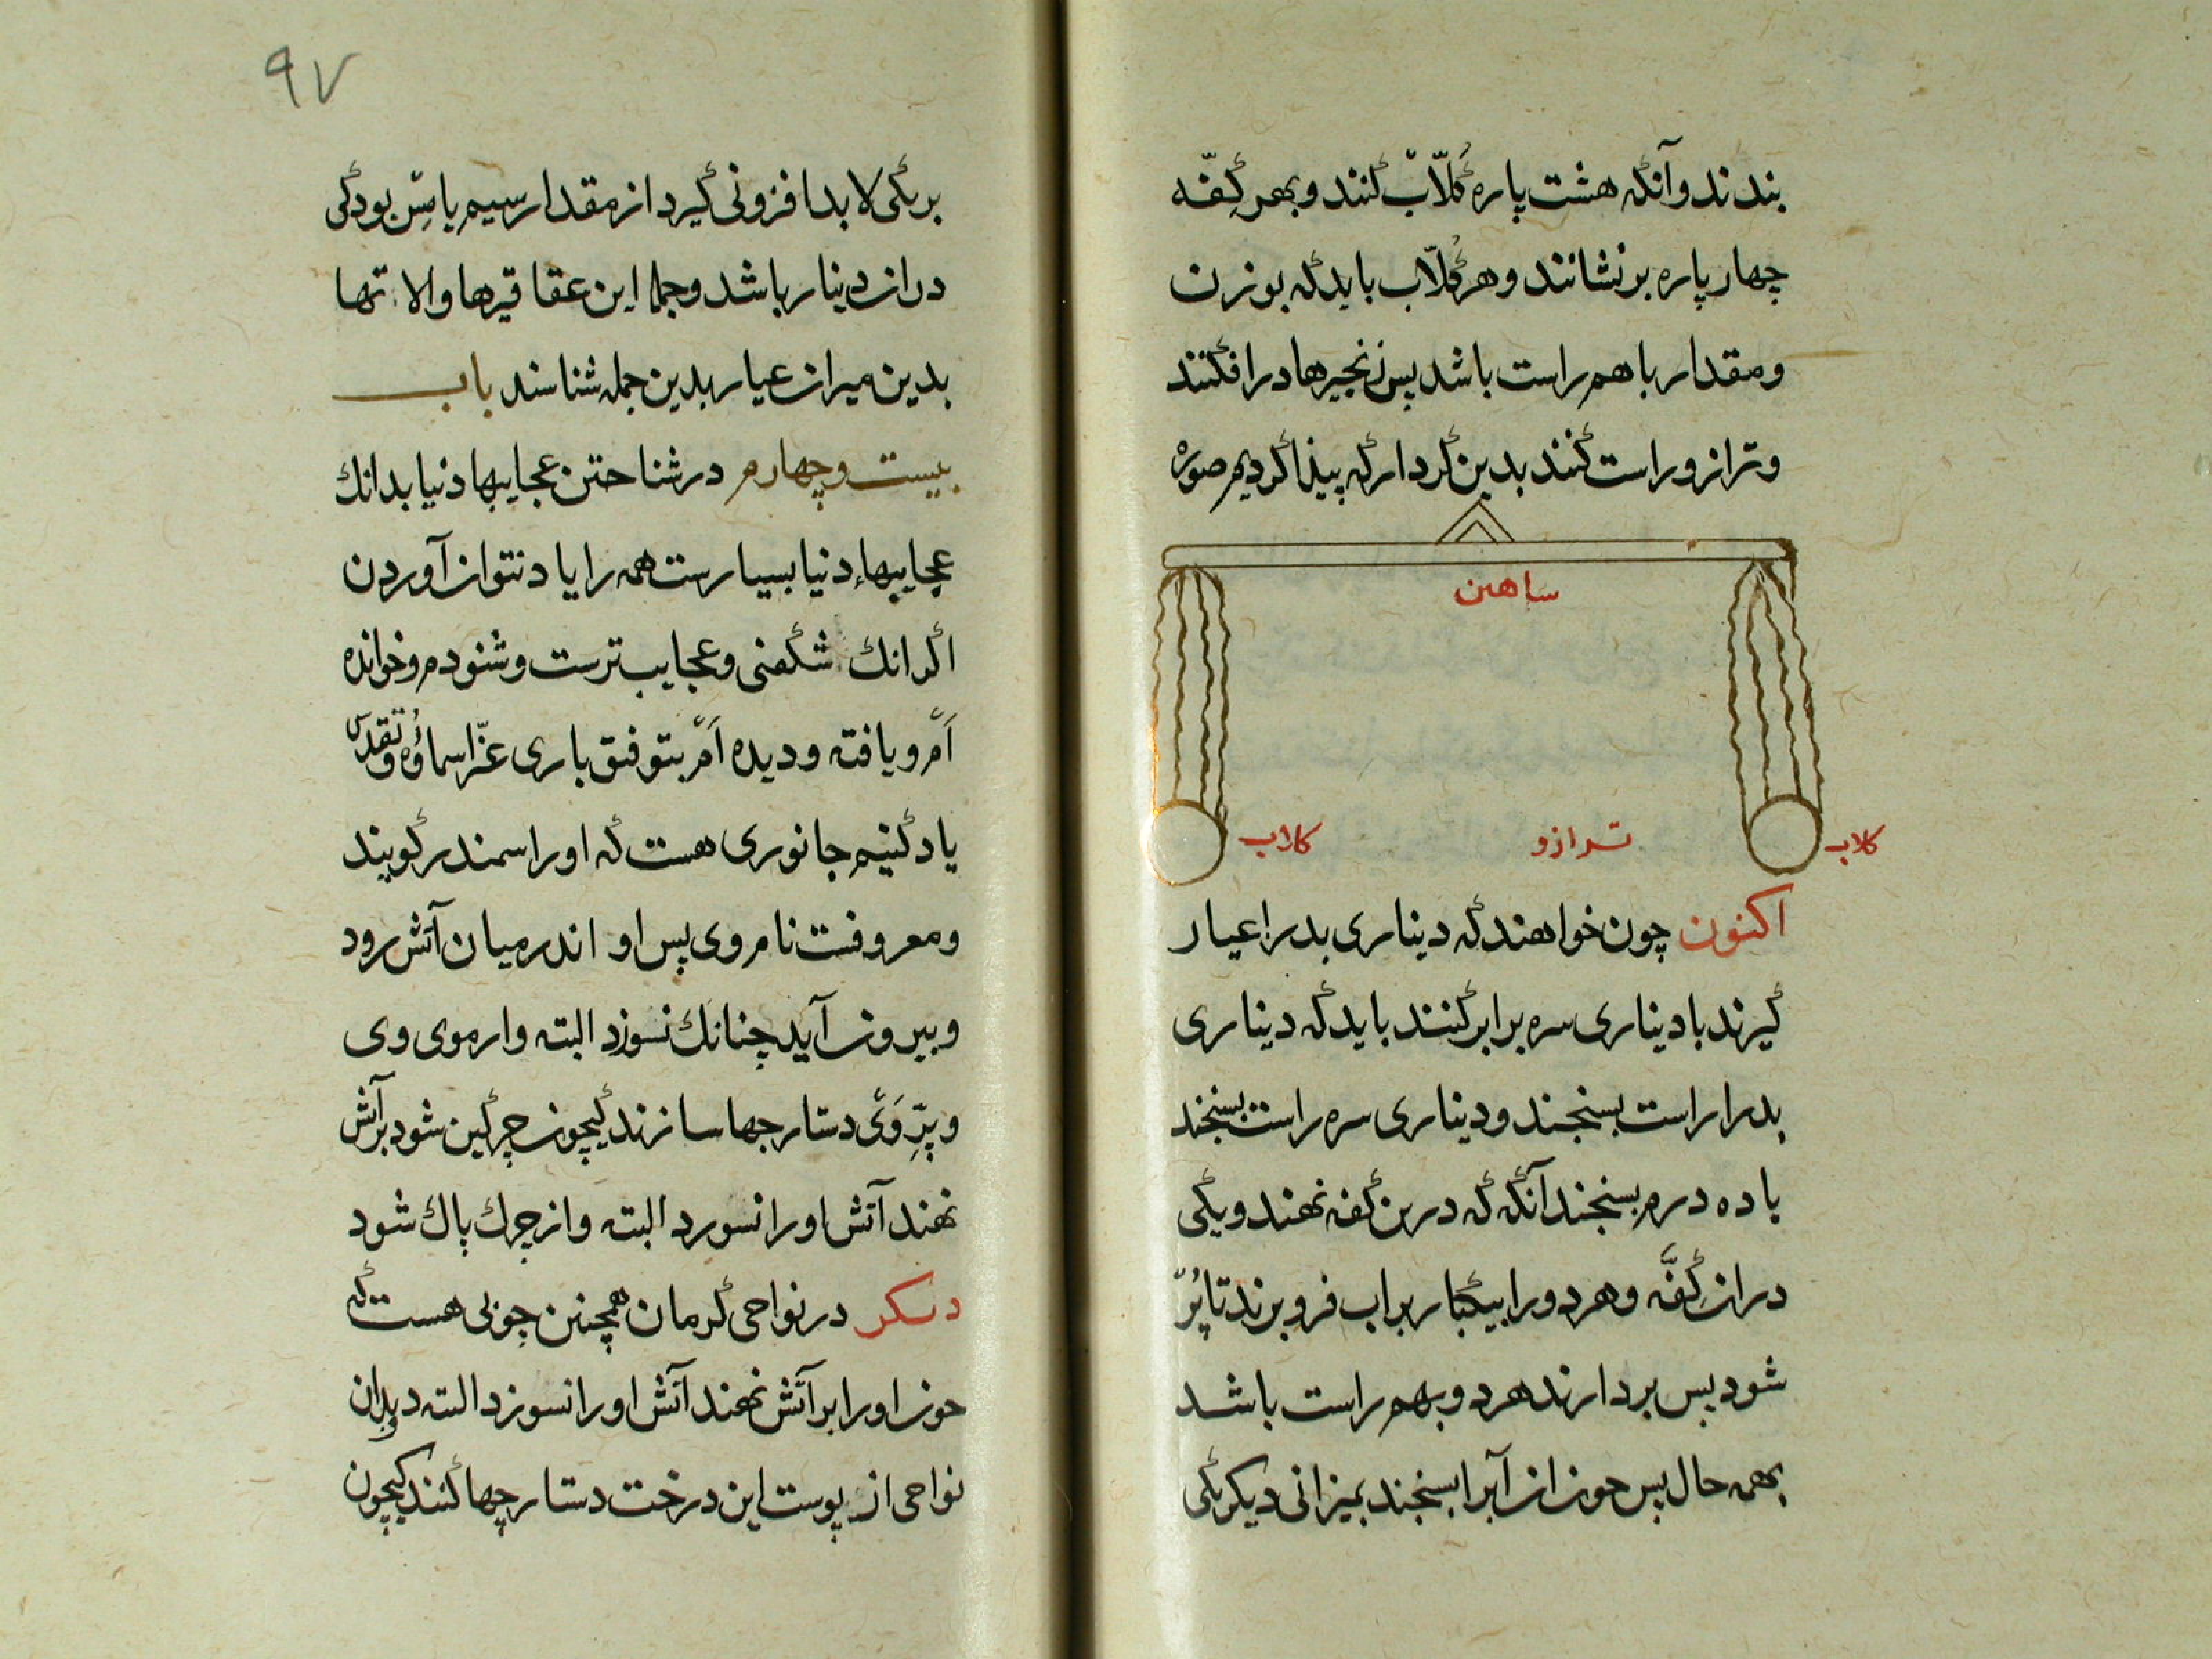 بندند وآنگه هشت پاره کُلّاب کنند وبهر کِفّه
چهار پاره برنشانند وهر کُلّاب باید که بوزن
ومقدار باهم راست باشد پس زنجیرها درافکنند
وترازو راست کنند بدین کردار که پیذا کردیم صوره
ساهین
کلاب
ترازو
کلاب
اکنون چون خواهند که دیناری بد را عیار
گیرند با دیناری سره برابر کنند باید که دیناری
بد را راست بسنجند ودیناری سره راست بسنجند
یا ده درم بسنجند آنگه که درین کفه نهند ویکی
دران کِفَّه وهر دو را بیکبار بر اب فرو برند تا پُرّ
شود پس بردارند هر دو بهم راست باشد
بهمه حال پس چون ازان آبرا بسنجند بمیزانی دیکر یکی
۹۷
بریکی لابد افزونی گیرد از مقدار سیم یا مس بود کی
دران دینار باشد وجمله این عقاقیرها والاتها
بدین میزان عیار بدین جمله شناسند باب
بیست وچهارم در شناختن عجایبها دنیا بدانك
عجایبهاء دنیا بسیارست همه را یاد نتوان آوردن
اگر انك شگفتی وعجایب ترست وشنوده و خوانده
اَم ویافته ودیده اَم بتوفیق باری عزّ اسماؤُه وتقدس
یاد کنیم جانوری هست که او را سمندر گویند
ومعروفست نام وی پس او اندر میان آتش رود
وبیرون آید چنانك نسوزد البته واز موی وی
وپرِّ وَی دستارجها سازند کیچون چرگین شود بر آتش
نهند آتش او را نسورد البته واز چرك پاك شود
دیکر در نواحی کرمان همچنین چوبی هست که
چون او را بر آتش نهند آتش او را نسوزد البته وبدان
نواحی از پوست این درخت دستارچها کنند کیچون